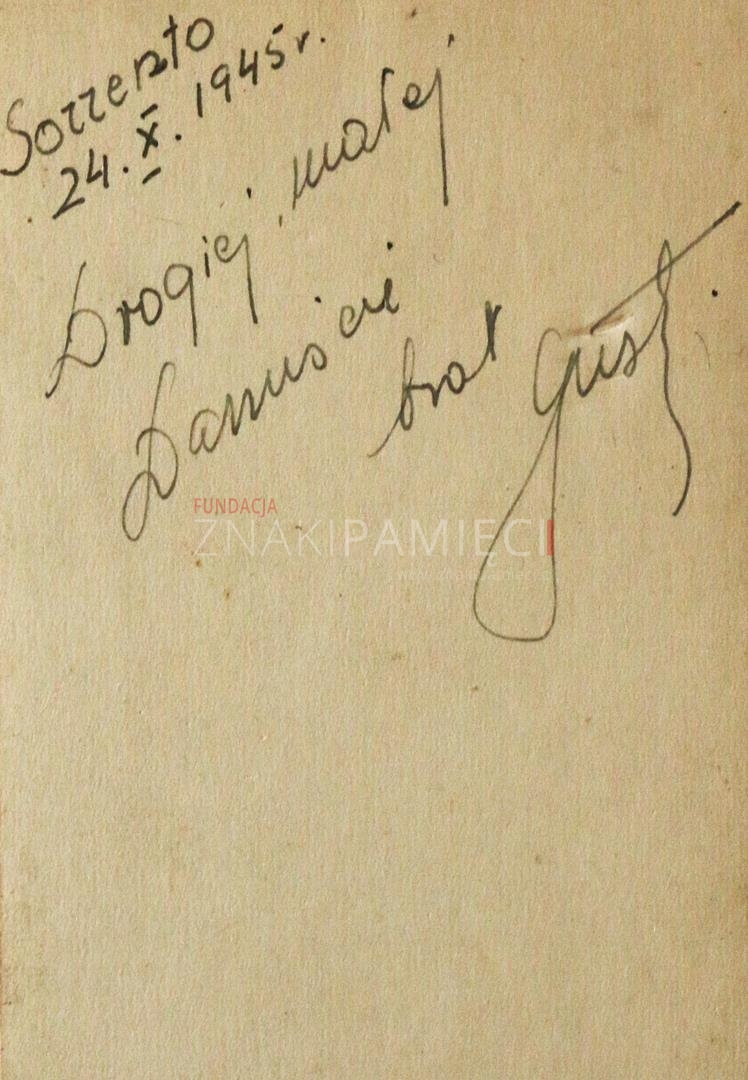 Sorrento
24.X.1945r.
Drogiej, małej
Danusi
brat Gust.
FUNDACJA
ZNAKIPAMIĘCI